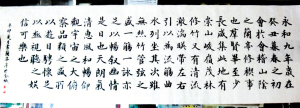 永和九年歲在
癸丑暮春之初
會於會稽山陰
之蘭亭修禊事
也羣賢畢至少
長咸集此地有
崇山峻嶺茂林
修竹又有清流
激湍映帶左右
引以為流觴曲
水列坐其次雖
無絲竹管弦之
盛一觴一詠亦
足以暢敘幽情
是日也天朗氣
清惠風和暢仰
觀宇宙之大俯
察品類之盛所
以遊目騁懷足
以極視聽之娛
信可樂也